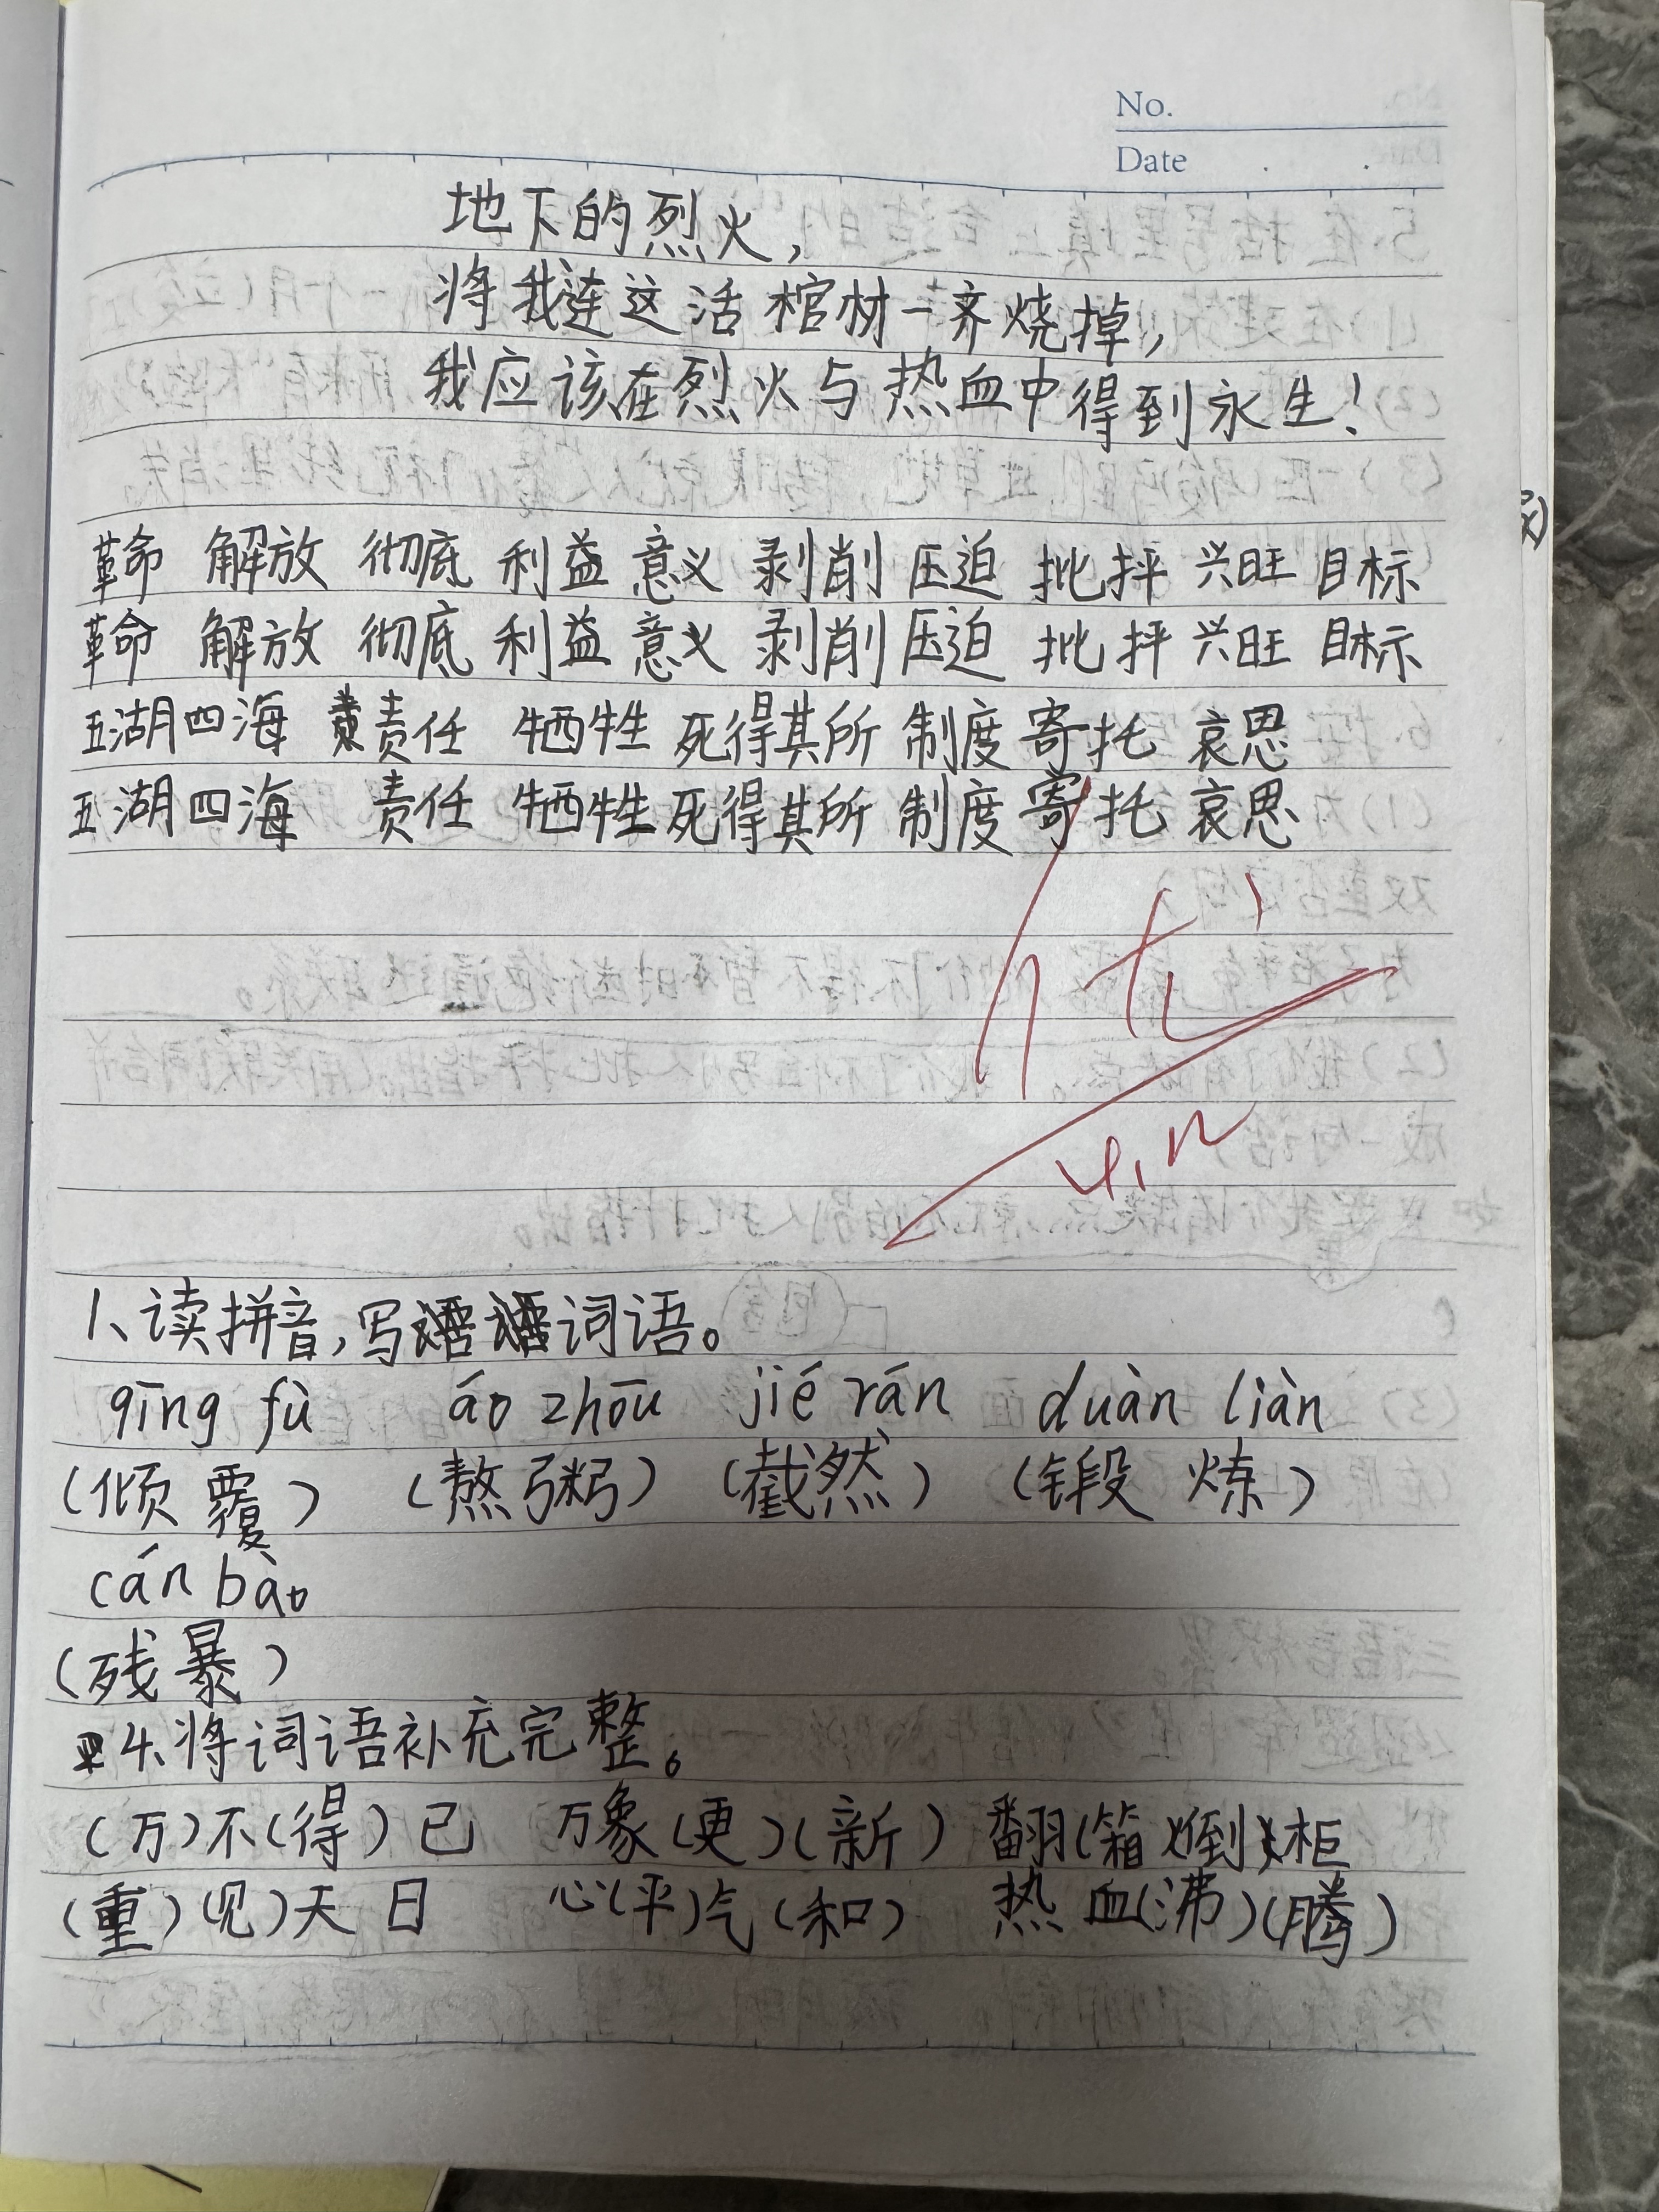 No.
Date
地下的烈火，
将我连这活棺材一齐烧掉，
我应该在烈火与热血中得到永生！
革命 解放 彻底 利益 意义 剥削 压迫 批抨 兴旺 目标
革命 解放 彻底 利益 意义 剥削 压迫 批抨 兴旺 目标
五湖四海 责任 牺牲 死得其所 制度 寄托 哀思
五湖四海 责任 牺牲 死得其所 制度 寄托 哀思
优
4.12
1、读拼音，写词语。
qīng fù áo zhōu jié rán duàn liàn
（倾覆） （熬粥） （截然） （锻炼）
cán bào
（残暴）
4、将词语补充完整。
（万）不（得）已 万象（更）（新） 翻（箱）（倒）柜
（重）（见）天日 心（平）气（和） 热血（沸）（腾）